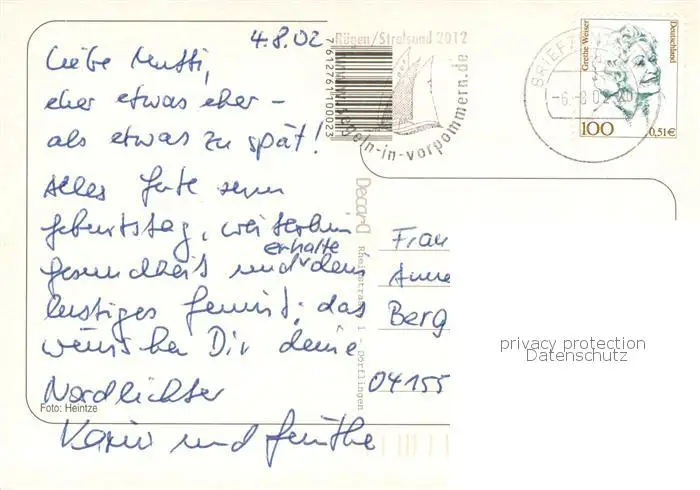 4.8.02
Liebe Mutti,
eher etwas eher -
als etwas zu spät!
Alles Gute zum
Geburtstag, weiterhin
Gesundheit und erhalte dein
lustiges Gemüt; das
wünschen Dir deine
Nordlichter
Karin und Günther
Foto: Heintze
7612761100023
Rügen/Stralsund 2012
segeln-in-vorpommern.de
Decard
Rheinstrasse 1 - Dörflingen
BRIEFZENT
-6.-8.02-20
Grethe Weiser
Deutschland
100
0,51€
Frau
Anne
Berg
04155
privacy protection
Datenschutz